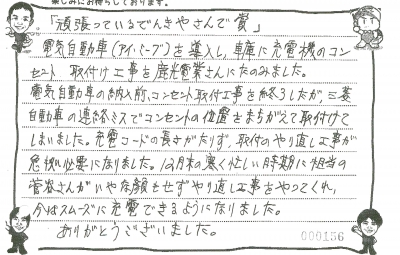 楽しみにお待ちしております。
「頑張っているでんきやさんで賞」
電気自動車(アイ・ミーブ)を導入し、車庫に充電機のコン
セント 取付け工事を鹿光電業さんにたのみました。
電気自動車の納入前、コンセント取付工事を終了したが、三菱
自動車の連絡ミスでコンセントの位置をまちがえて取付けて
しまいました。充電コードの長さがたりず、取付のやり直し工事が
急拠必要になりました。12月末の寒く忙しい時期に担当の
菅谷さんがいやな顔もせずやり直し工事をやってくれ、
今はスムーズに充電できるようになりました。
ありがとうございました。
000156